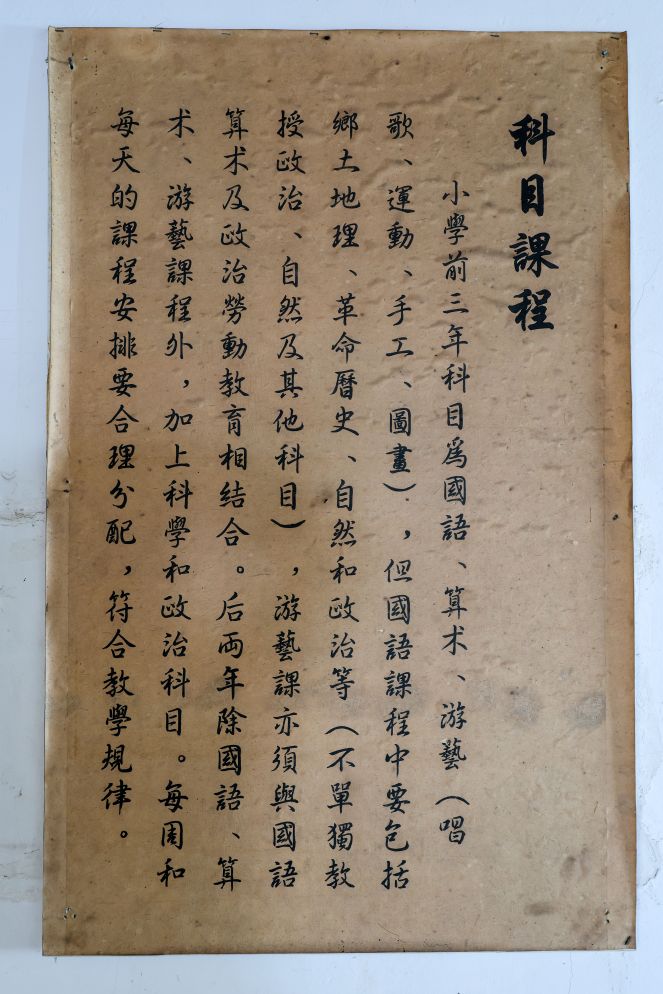 科目課程
小學前三年科目爲國語、算术、游藝（唱
歌、運動、手工、圖畫），但國語課程中要包括
鄉土地理、革命曆史、自然和政治等（不單獨教
授政治、自然及其他科目），游藝課亦須與國語
算术及政治勞動教育相結合。后両年除國語、算
术、游藝課程外，加上科學和政治科目。每周和
每天的課程安排要合理分配，符合教學規律。